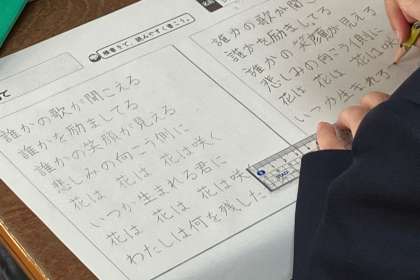 横書きで、読みやすく書こう。
誰かの歌が聞こえる
誰かを励ましてる
誰かの笑顔が見える
悲しみの向こう側に
花は 花は 花は咲く
いつか生まれる君に
花は 花は 花は咲
わたしは何を残した
誰かの歌が聞こ
誰かを励ましてる
誰かの笑顔が見える
悲しみの向こう側に
花は 花は 花は咲
いつか生まれる